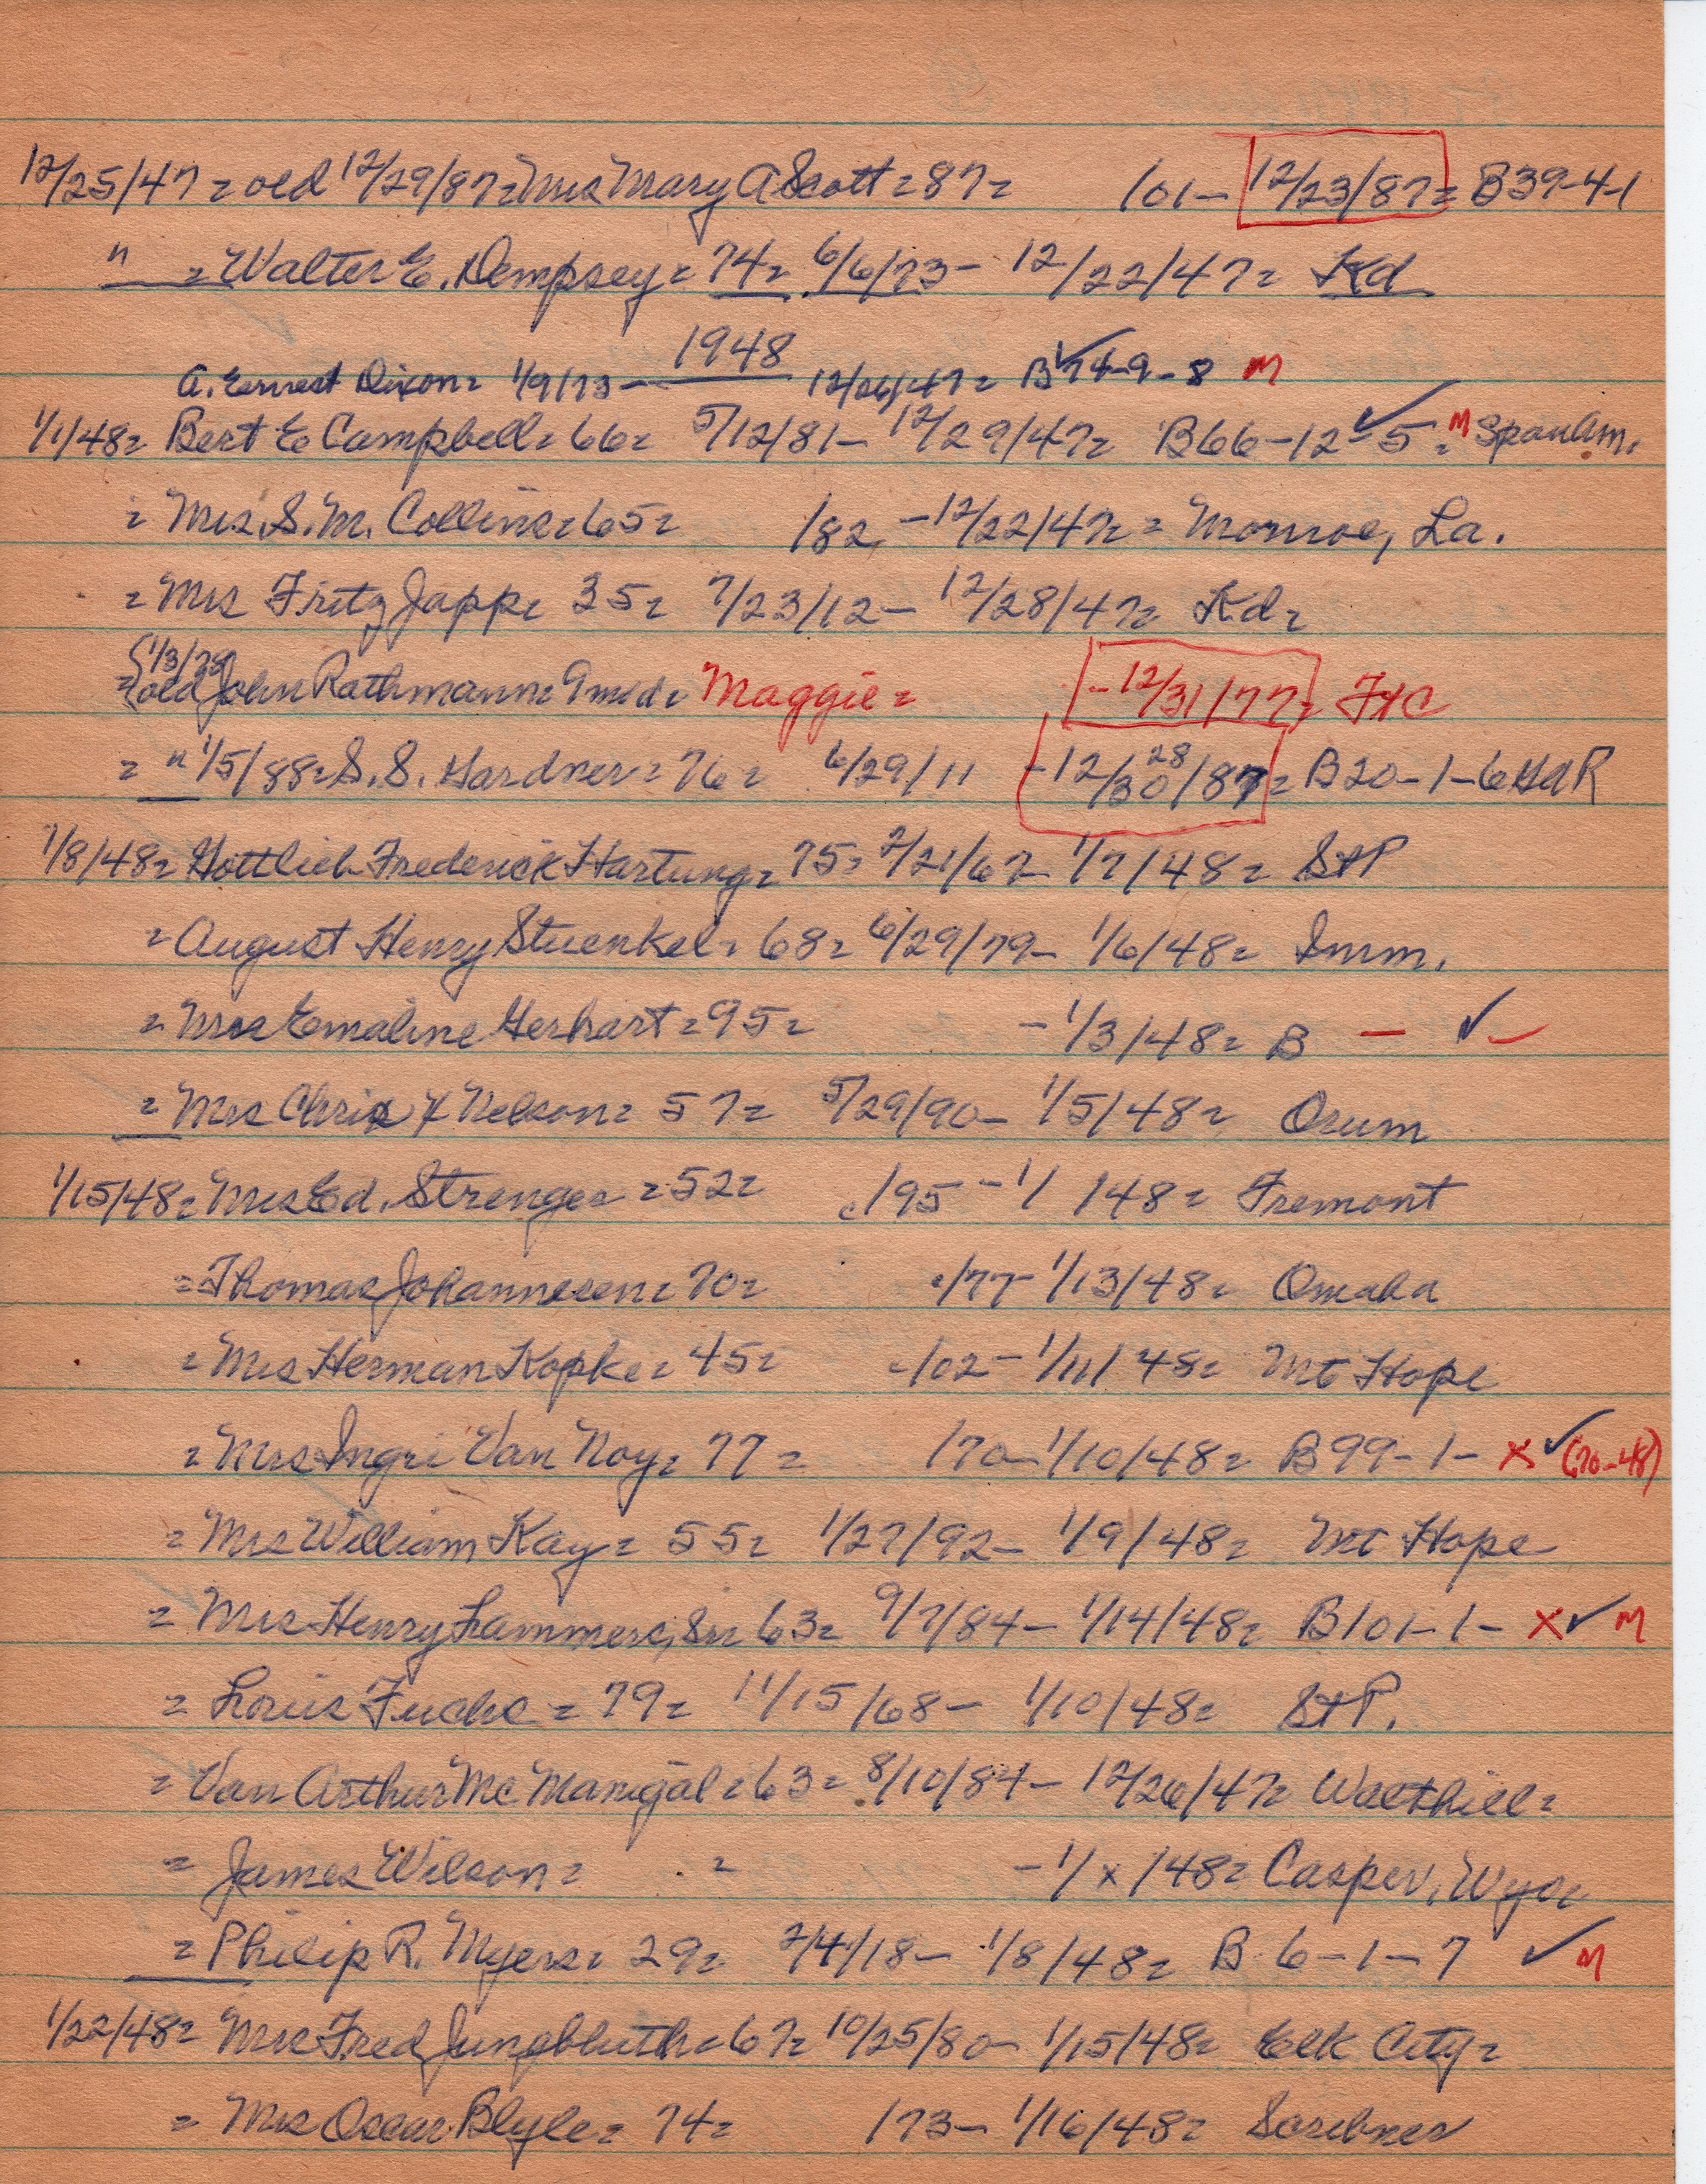 12/25/47 = old 12/29/87 = Mrs Mary A Scott = 87 = /01 - 12/23/87 = B39-4-1
" = Walter E. Dempsey = 74 = 6/6/73 - 12/22/47 = Kd
1948
A. Earnest Dixon = 1/9/73 - 12/26/47 = B174-9-8 M
1/1/48 = Bert E Campbell = 66 = 5/12/81 - 12/29/47 = B66-12-5 = M Span Am.
= Mrs. S. M. Collins = 65 = /82 - 12/22/47 = = Monroe, La.
= Mrs Fritz Japp = 35 = 7/23/12 - 12/28/47 = Kd =
= old 1/3/78 John Rathmann = 9 m d = Maggie = - 12/31/77 = FHC
= " 1/5/88 = S. S. Gardner = 76 = 6/29/11 - 12/30/87 = 28 B20-1-6 GAR
1/8/48 = Gottlieb Frederick Hartung = 75 = 2/21/67 - 1/7/48 = St P
= August Henry Stuenkel = 68 = 6/29/79 - 1/6/48 = Imm.
= Mrs Emaline Gerhart = 95 = - 1/3/48 = B - ✓ -
= Mrs Chris X Nelson = 57 = 5/29/90 - 1/5/48 = Orum
1/15/48 = Mrs Ed. Strenger = 52 = c/95 - 1/ /48 = Fremont
= Thomas Johannesen = 70 = c/77 - 1/13/48 = Omaha
= Mrs Herman Kopke = 45 = c/02 - 1/11/48 = Mt Hope
= Mrs Ingri Van Noy = 77 = /70 - 1/10/48 = B99-1- X ✓ (70-48)
= Mrs William Kay = 55 = 1/27/92 - 1/9/48 = Mt Hope
= Mrs Henry Lammers, Sr = 63 = 9/7/84 - 1/14/48 = B101-1- X ✓ M
= Louis Fuchs = 79 = 11/15/68 - 1/10/48 = St P.
= Van Arthur Mc Manigal = 63 = 8/10/84 - 12/26/47 = Walthill =
= James Wilson = = - 1/x/48 = Casper, Wyo =
= Philip R. Myers = 29 = 2/4/18 - 1/8/48 = B 6-1-7 ✓ M
1/22/48 = Mrs Fred Jungbluth = 67 = 10/25/80 - 1/15/48 = Elk City =
= Mrs Oscar Blyle = 74 = /73 - 1/16/48 = Scribner